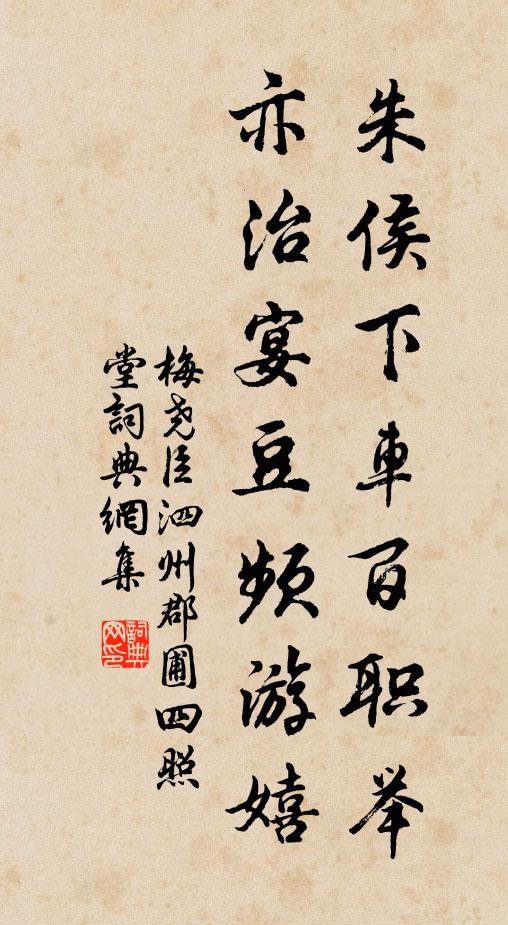 朱侯下车百职举
亦治宴豆频游嬉
梅尧臣泗州郡圃四照
堂詞典網集
詞典网印